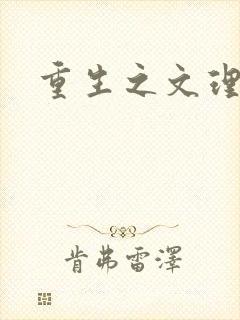 重生之文理
肯弗雷澤